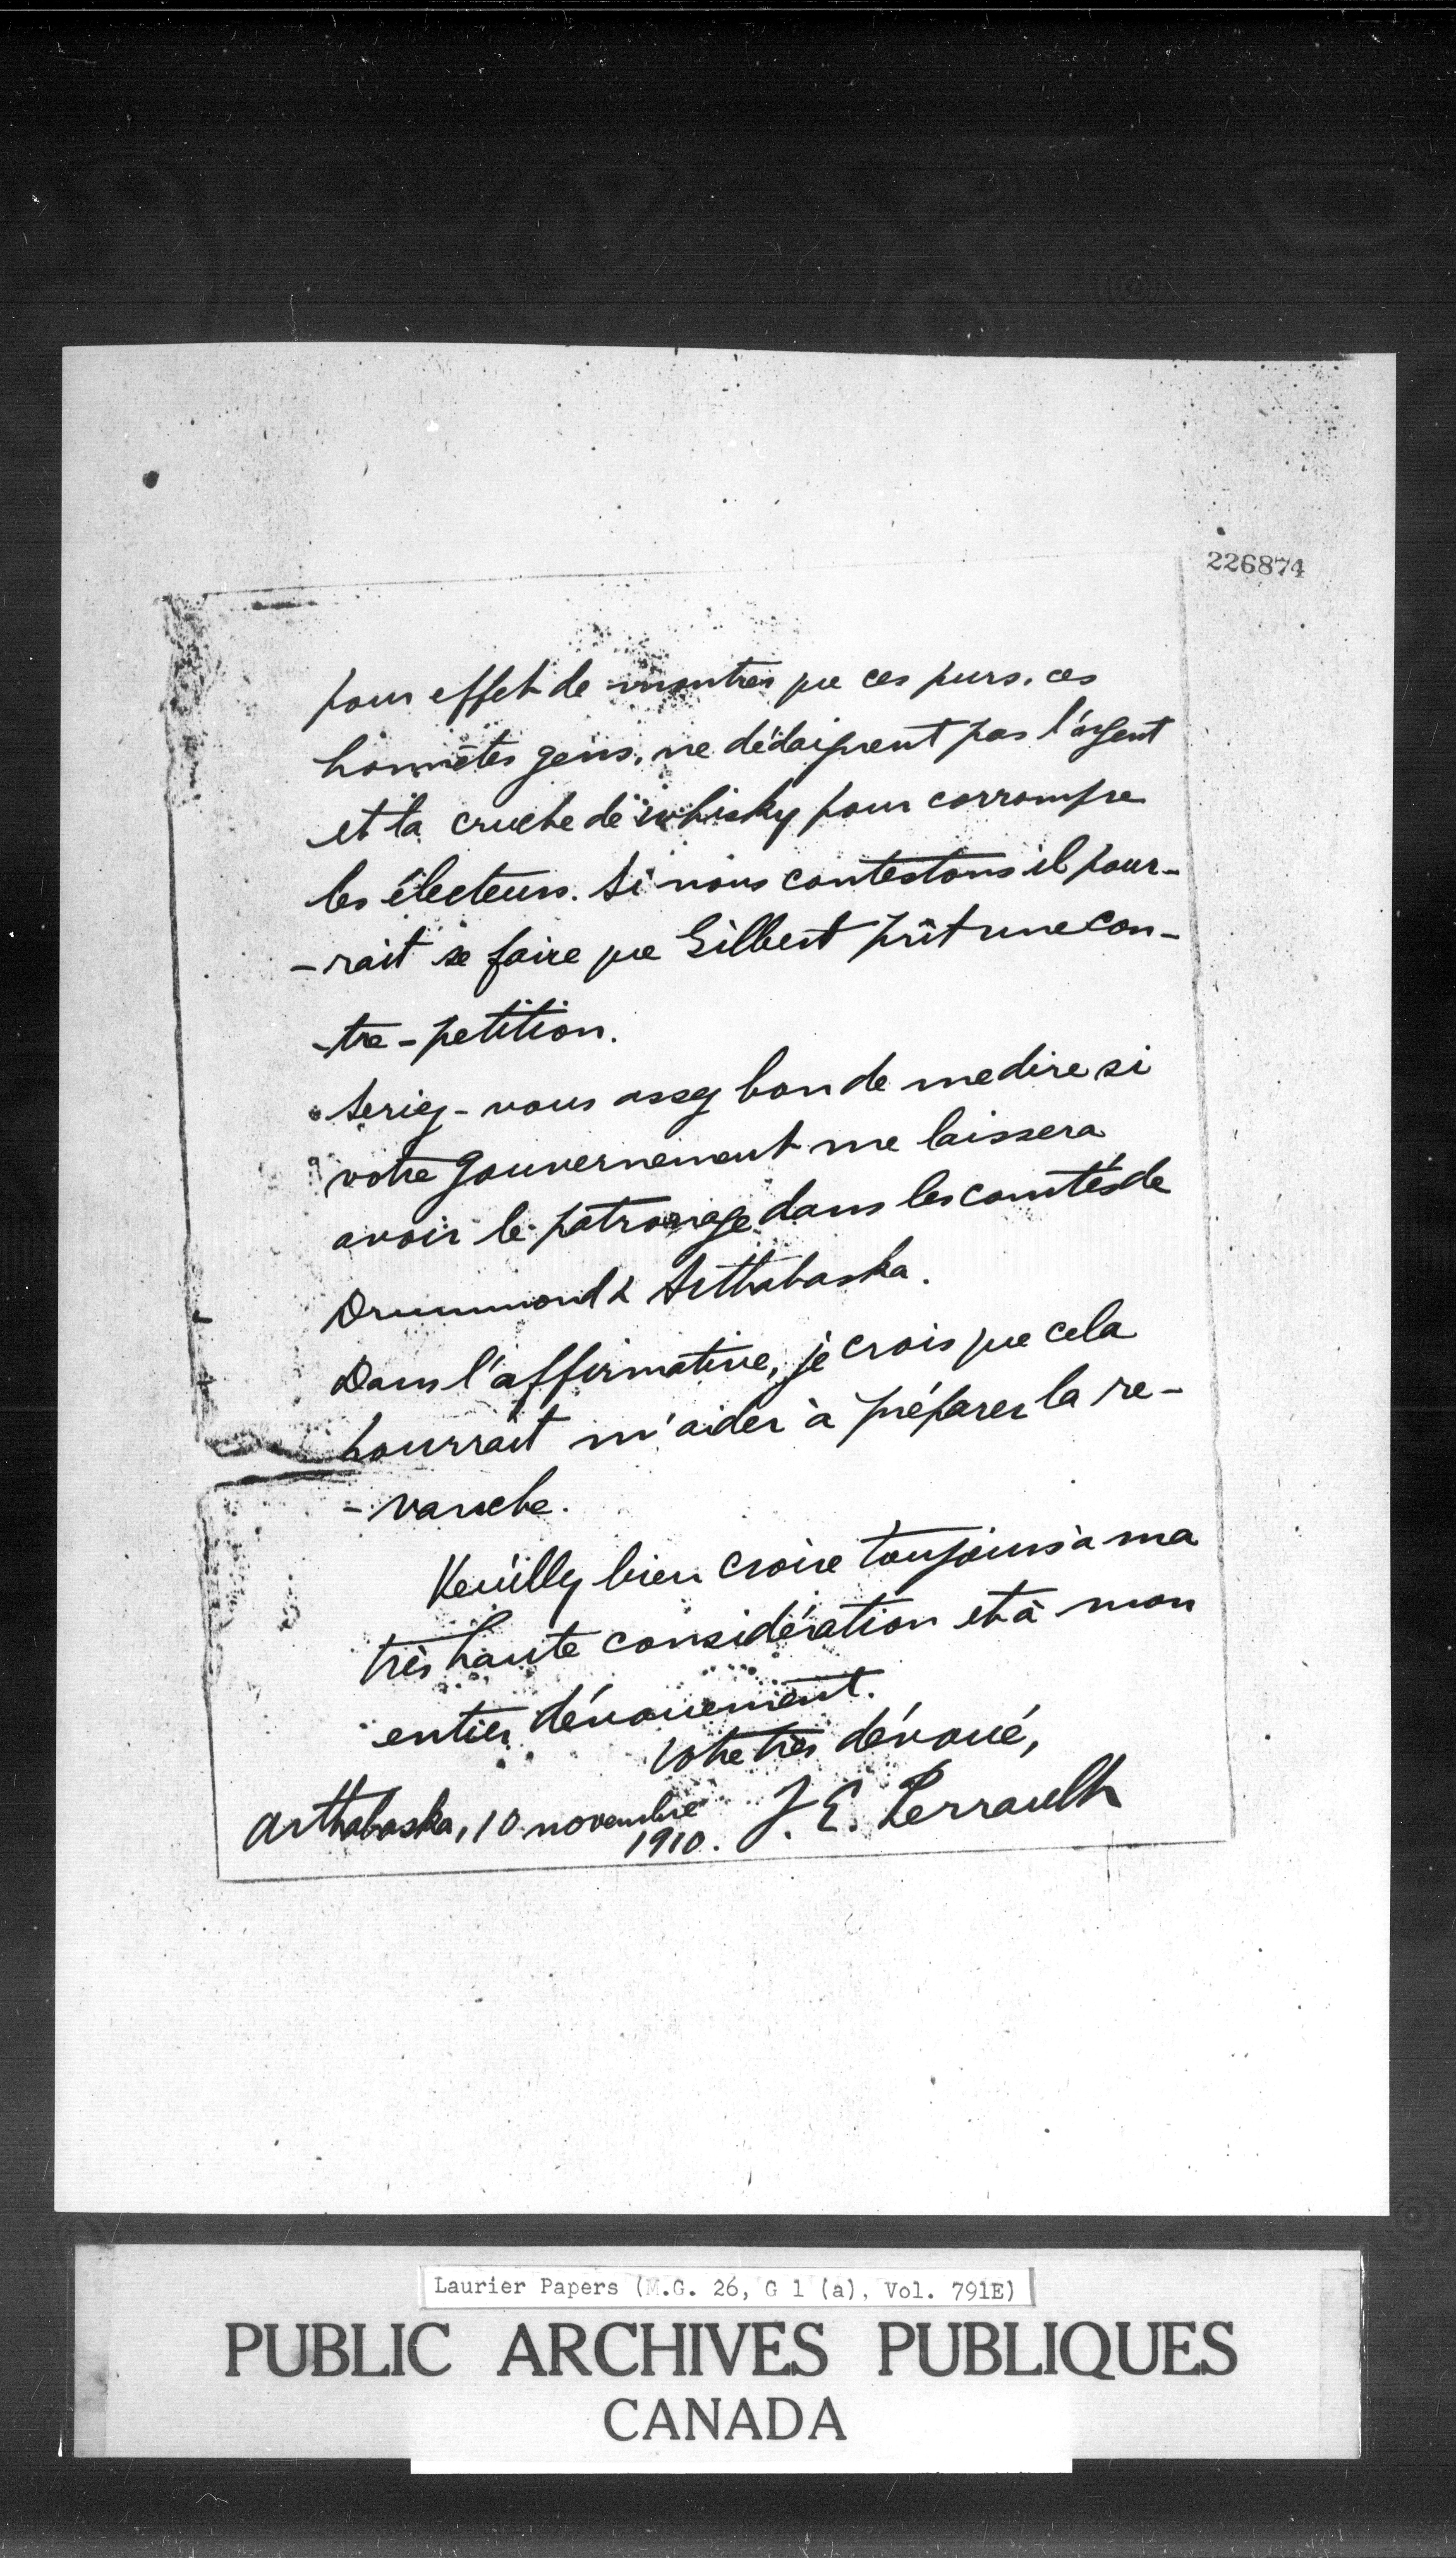 226874
pour effet de montrer que ces purs, ces
honnêtes gens, ne dédaignent pas l'argent
et la cruche de whisky pour corrompre
les électeurs. Si nous contestons il pour-
-rait se faire que Gilbert prît une con-
-tre-petition.
Seriez-vous assez bon de me dire si
votre gouvernement me laissera
avoir le patronage dans les comtés de
Drummond & Arthabaska.
Dans l'affirmative, je crois que cela
pourrait m'aider à préparer la re-
-vanche.
Veuillez bien croire toujours à ma
très haute considération et à mon
entier dévouement.
Votre très dévoué,
J. E. Perrault
Arthabaska, 10 novembre
1910.
Laurier Papers (M.G. 26, G 1 (a), Vol. 791E)
PUBLIC ARCHIVES PUBLIQUES
CANADA